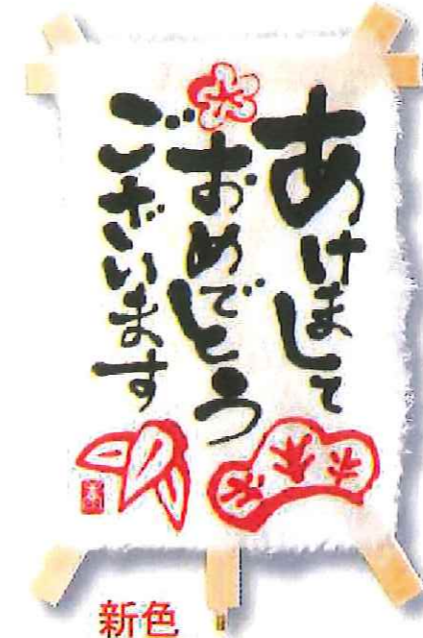 あけまして
おめでとう
ございます
新色